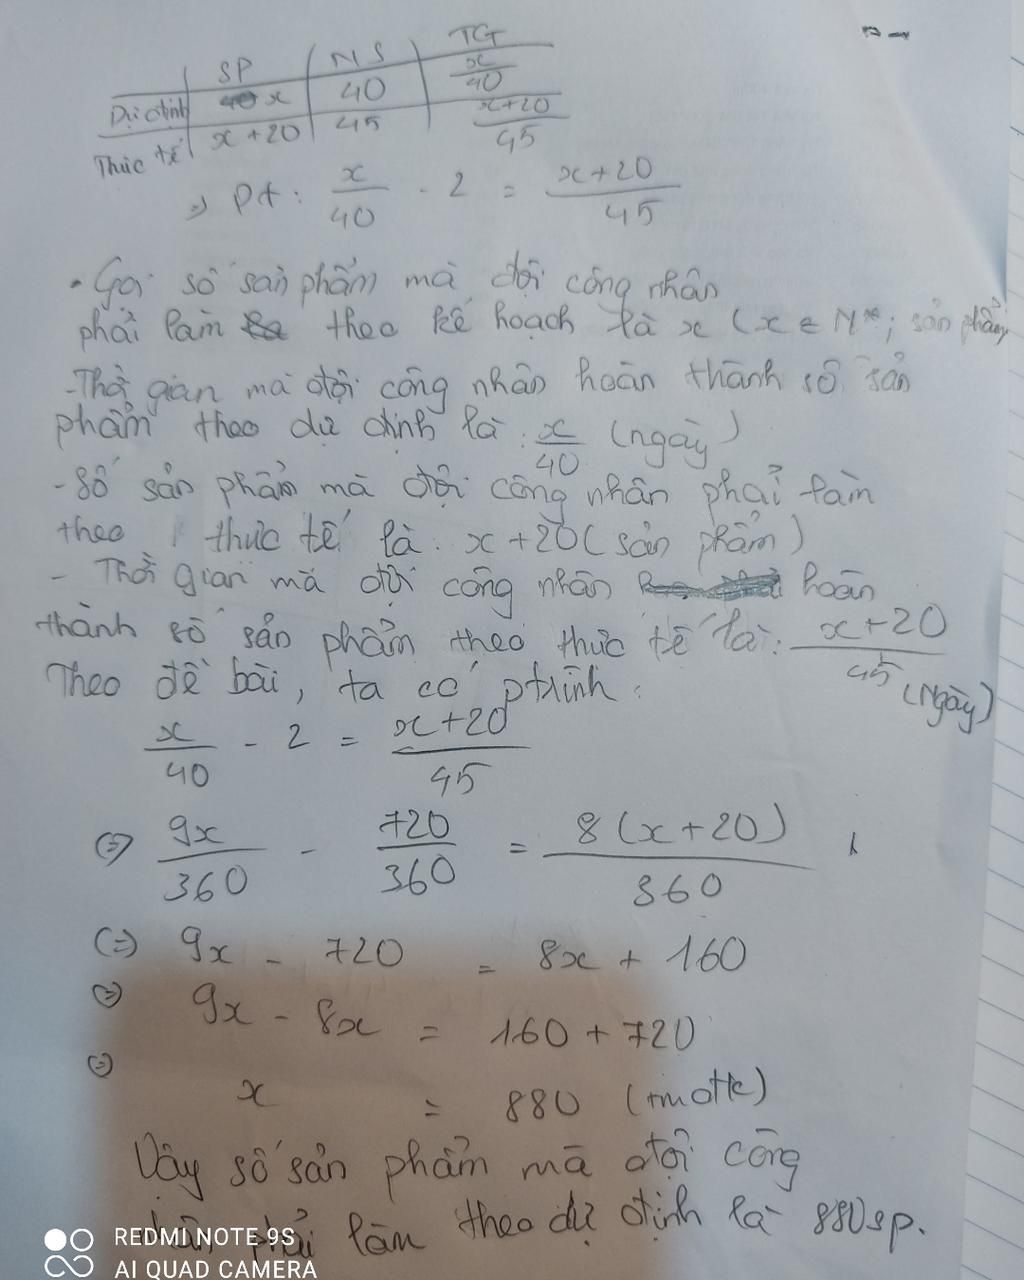 SP | NS | TG
Dự định | x | 40 | x/40
Thực tế | x + 20 | 45 | x+20/45
=> Pt: x/40 - 2 = x+20/45
• Gọi số sản phẩm mà đội công nhân
phải làm theo kế hoạch là x (x ∈ N*; sản phẩm
- Thời gian mà đội công nhân hoàn thành số sản
phẩm theo dự định là: x/40 (ngày)
- Số sản phẩm mà đội công nhân phải làm
theo thực tế là: x + 20 (sản phẩm)
- Thời gian mà đội công nhân hoàn
thành số sản phẩm theo thực tế là: x+20/45 (Ngày)
Theo đề bài, ta có ptrình:
x/40 - 2 = x+20/45
(=) 9x/360 - 720/360 = 8(x+20)/360
(=) 9x - 720 = 8x + 160
(=) 9x - 8x = 160 + 720
(=) x = 880 (tmđk)
Vậy số sản phẩm mà đội công
nhân phải làm theo dự định là 880sp.
REDMI NOTE 9S
AI QUAD CAMERA